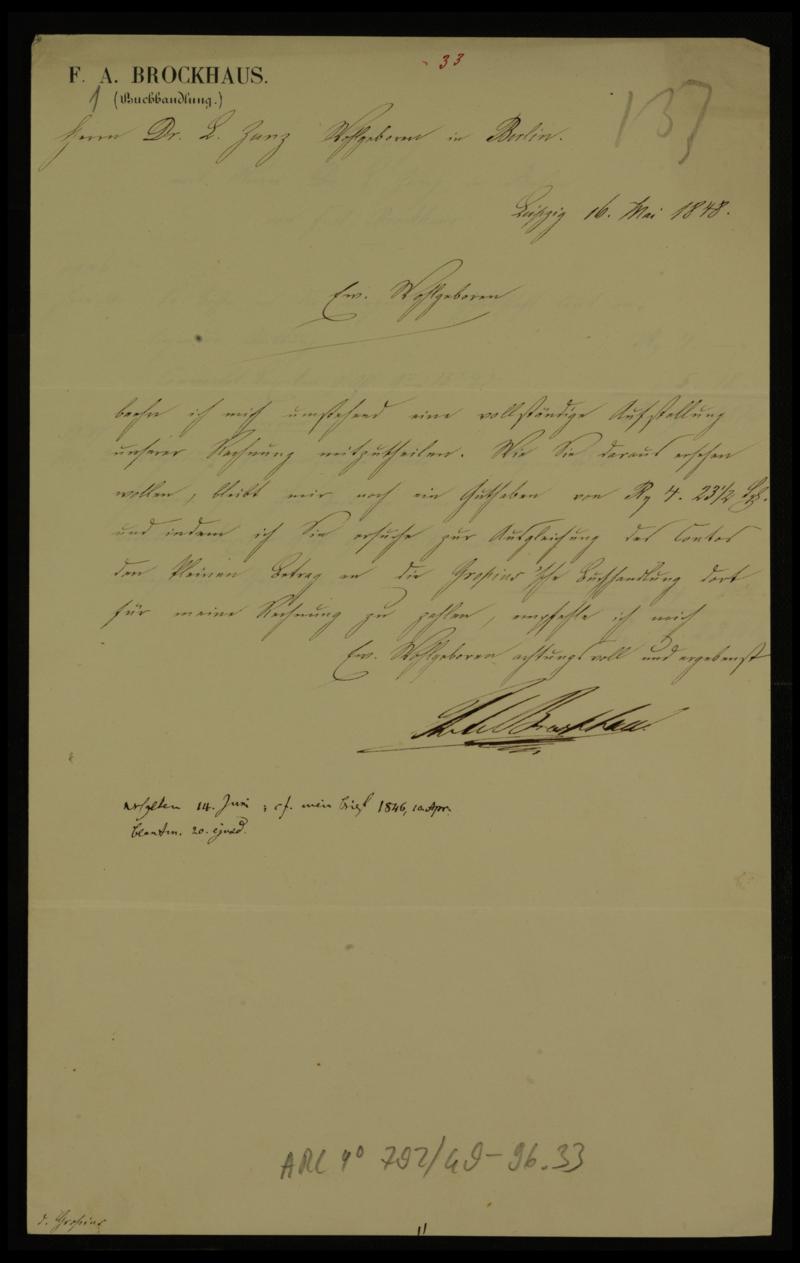 33
F. A. BROCKHAUS.
1 (Buchhandlung.)
137
Herrn Dr. L. Zunz Wohlgeboren in Berlin.
Leipzig 16. Mai 1848.
Ew. Wohlgeboren
beehre ich mich umstehend eine vollständige Aufstellung
unserer Rechnung mitzutheilen. Wie Sie daraus ersehen
wollen, bleibt mir noch ein Guthaben von Rg 4. 23 1/2 Sgr.
und indem ich Sie ersuche zur Ausgleichung des Contos
den kleinen Betrag an die Gropius'sche Buchhandlung dort
für meine Rechnung zu zahlen, empfehle ich mich
Ew. Wohlgeboren achtungsvoll und ergebenst
Brockhaus
erhalten 14. Juni ; cf. mein Brief 1846, 10 Apr.
beantw. 20. ejusd.
ARC 4° 792/G9-96.33
d. Gropius